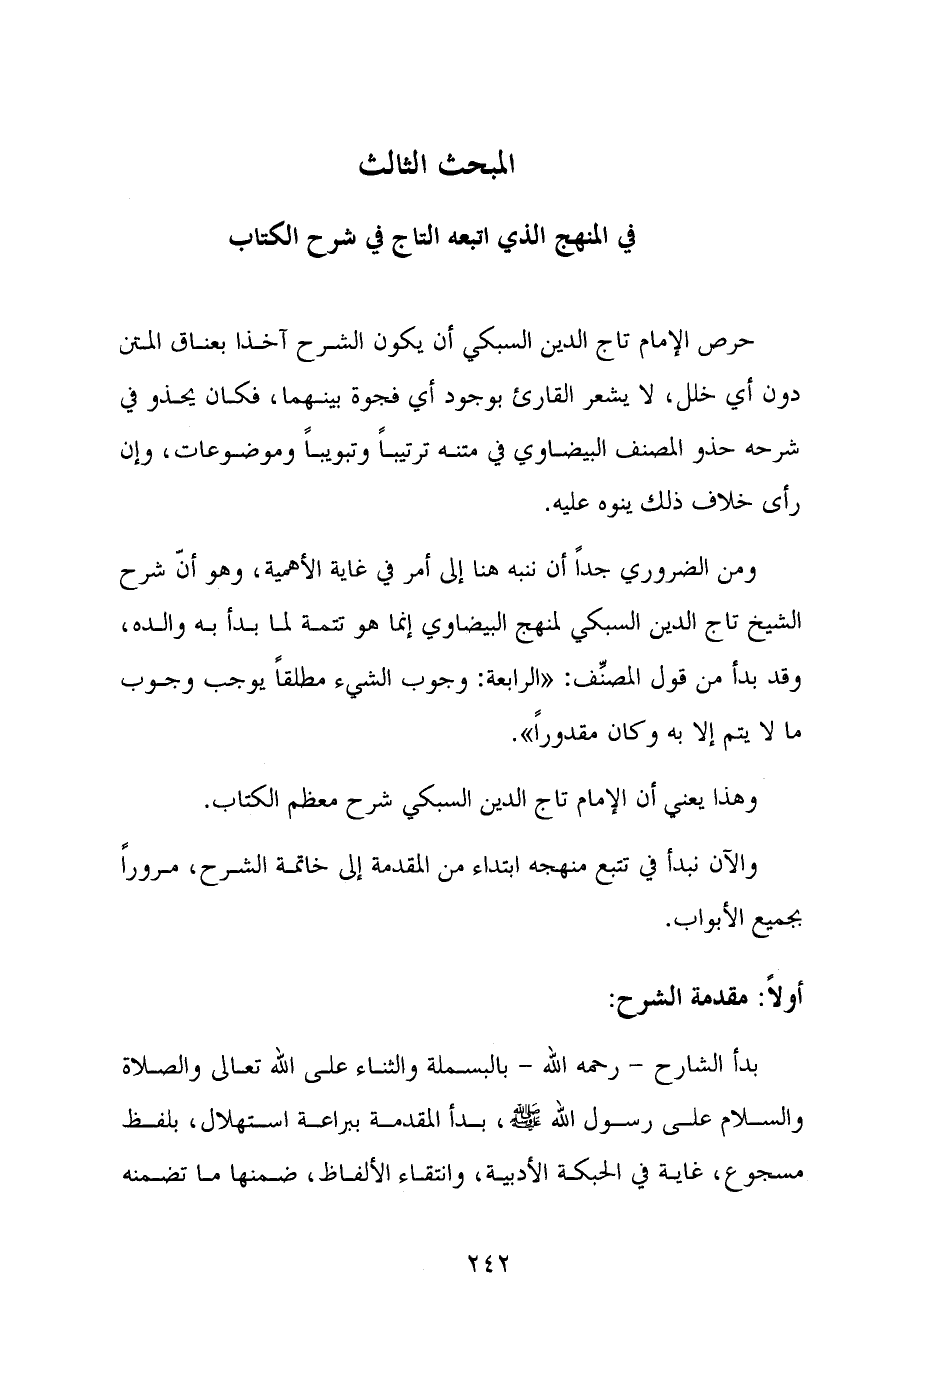 المبحث الثالث
في المنهج الذي اتبعه التاج في شرح الكتاب
حرص الإمام تاج الدين السبكي أن يكون الشرح آخذا بعناق المتن
دون أي خلل، لا يشعر القارئ بوجود أي فجوة بينهما، فكان يحذو في
شرحه حذو المصنف البيضاوي في متنه ترتيباً وتبويباً وموضوعات، وإن
رأى خلاف ذلك ينوه عليه.
ومن الضروري جداً أن ننبه هنا إلى أمر في غاية الأهمية، وهو أنّ شرح
الشيخ تاج الدين السبكي لمنهج البيضاوي إنما هو تتمة لما بدأ به والده،
وقد بدأ من قول المصنِّف: «الرابعة: وجوب الشيء مطلقاً يوجب وجوب
ما لا يتم إلا به وكان مقدوراً».
وهذا يعني أن الإمام تاج الدين السبكي شرح معظم الكتاب.
والآن نبدأ في تتبع منهجه ابتداء من المقدمة إلى خاتمة الشرح، مروراً
بجميع الأبواب.
أولاً: مقدمة الشرح:
بدأ الشارح - رحمه الله - بالبسملة والثناء على الله تعالى والصلاة
والسلام على رسول الله ﷺ، بدأ المقدمة ببراعة استهلال، بلفظ
مسجوع، غاية في الحبكة الأدبية، وانتقاء الألفاظ، ضمنها ما تضمنه
٢٤٢